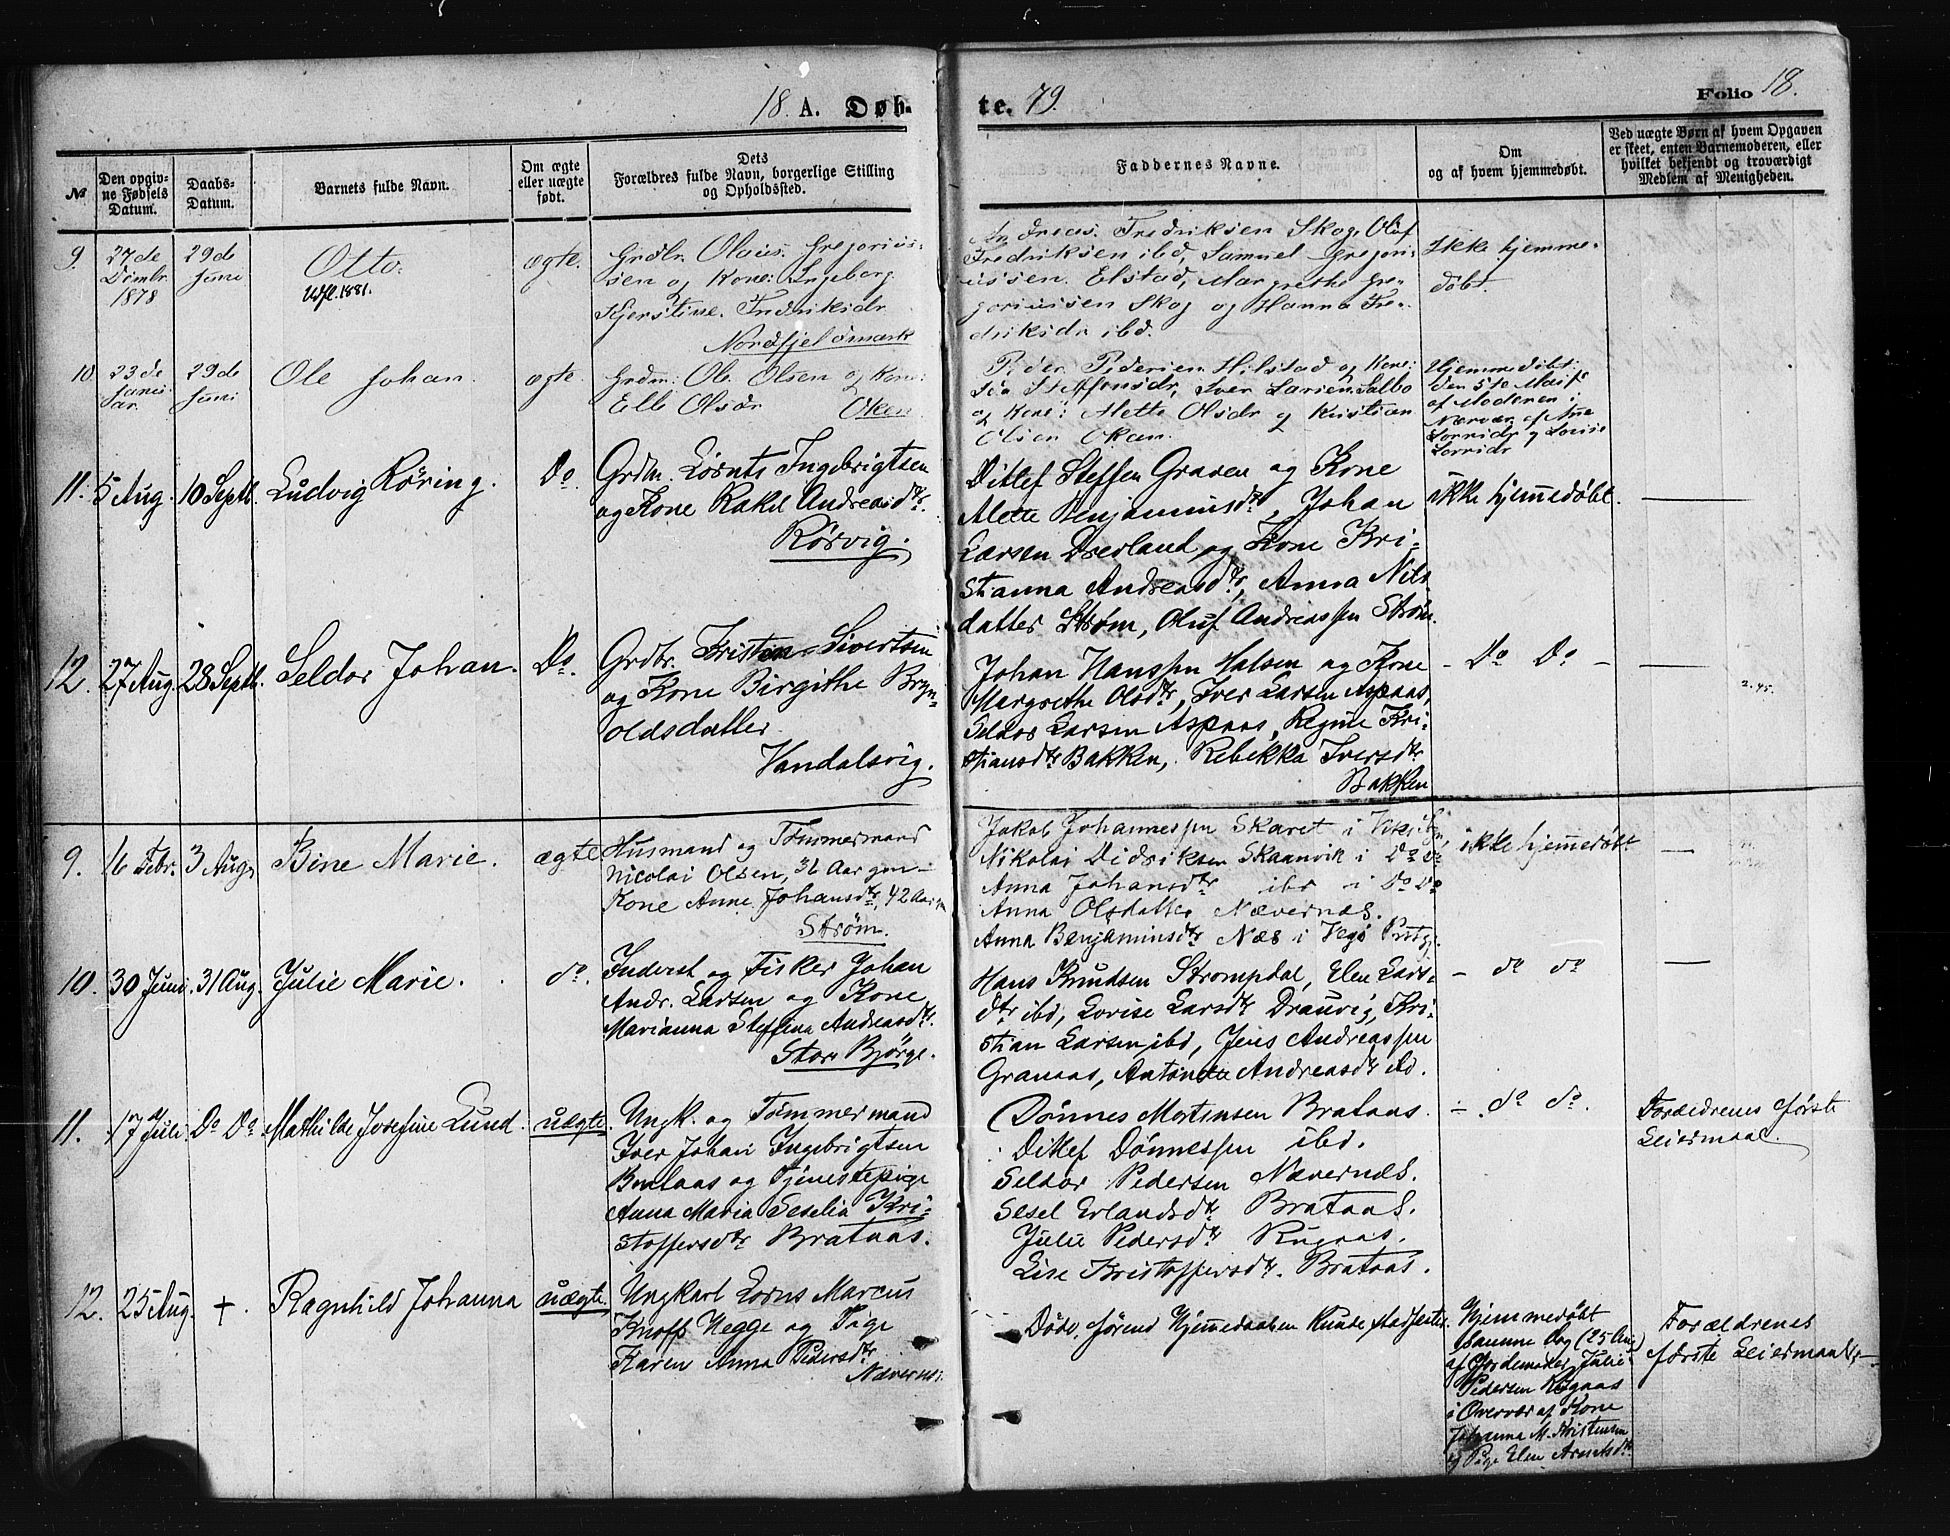 18 A. Døb-
te. 79.
Folio 18.
№
Den opgiv-
ne Fødsels
Datum.
Daabs-
Datum.
Barnets fulde Navn.
Om ægte
eller uægte
født.
Dets
Forældres fulde Navn, borgerlige Stilling
og Opholdssted.
Faddernes Navne.
Om
og af hvem hjemmedøbt.
Ved uægte Børn af hvem Opgaven
er skeet, enten Barnemoderen, eller
hvilket bekjendt og troværdigt
Medlem af Menigheden.
9.
27de
Dcmbr.
1878
29de
Juni
Otto.
Udfl. 1881.
ægte.
Grdbr. Olaus Gregorius-
sen og Kone: Ingeborg
Kjerstine Fredriksdr
Nordfjeldsmark
Andreas Fredriksen Skog, Oluf
Fredriksen ibd, Samuel Gregori-
ussen Elstad, Margrethe Gre-
goriussen Skog og Hanna Fre-
driksdr ibd.
Ikke hjemme-
døbt.
10
23de
Janu-
ar.
29de
Juni
Ole Johan.
ægte.
Grdm: Ole Olsen og Kone:
Elle Olsdr Oken.
Peder Pedersen Hilstad og Kone:
Ida Steffensdr, Iver Larsen Salbo
og Kone: Alette Olsdr og Kristian
Olsen Okan.
Hjemmedøbt
den 5te Mai
af Moderen i
Nærvær af Ane
Lorridr og Lovise
Lorridr
11.
5 Aug.
10 Septb.
Ludvig Röring.
Do.
Grdm. Lornts Ingebrigtsen
og Kone Rakel Andreasdtr.
Rörvig.
Ditlef Steffen Graven og Kone
Alette Benjaminsdtr, Johan
Larsen Drevland og Kone Kri-
stianna Andreasdtr, Anna Nils
datter Strøm, Oluf Andreassen Strøm.
ikke hjemmedøbt.
12.
27 Aug.
28 Septb.
Seldor Johan.
Do.
Grdbr. Kristen Sivertsen
og Kone Birgithe Bryn-
oldsdatter
Vandalsvig.
Johan Hanssen Halsen og Kone
Margrethe Olsdtr, Iver Larsen Aspaas,
Seldor Larsen Aspaas, Regine Kri-
stiansdtr Bakken, Rebekka Iversdtr
Bakken
- Do Do -
2.45.
9.
16 Febr.
3 Aug.
Bine Marie.
ægte
Husmand og Tömmermand
Nicolai Olsen, 31 Aar gm.
Kone Anne Johansdtr, 42 Aar
Strøm.
Jakob Johannessen Skaret i
Nikolai Didriksen Skaanvik i Do Do
Anna Johansdtr ibd i Do Do
Anna Olsdatter Nævernes.
Anna Benjaminsdtr Næs i Vegø Prstgj.
ikke hjemmedøbt
10.
30 Juni.
31 Aug.
Julie Marie.
do.
Inderst og Fisker Johan
Andr. Larsen og Kone
Marianna Steffina Andreasdtr.
Store Bjørge.
Hans Knudsen Strompdal, Elen Lars-
dtr ibd, Lovise Larsdtr Drauvig, Kri-
stian Larsen ibd, Jens Andreassen
Granaas, Antonette Andreasdtr ibd.
- do do
11.
17 Juli
Do Do
Mathilde Josefine Lund.
uægte.
Ungk. og Tömmermand
Iver Johan Ingebrigtsen
Brataas og Tjenestepige
Anna Maria Seselia Kri-
stoffersdtr Brataas.
Dönnes Mortensen Brataas.
Ditlef Dönnessen ibd.
Seldor Pedersen Nævernes.
Sesel Erlandsdtr Brataas.
Julie Pedersdtr Rugaas.
Lise Kristoffersdtr. Brataas.
- do do.
Forældrenes første
Leiermaal.
12.
25 Aug.
+.
Ragnhild Johanna
uægte.
Ungkarl Lorns Marcus
Knoff Hegge og Pige
Karen Anna Pedersdtr
Nævernes.
Døde, førend Hjemmedaaben kunde stadfestes.
Hjemmedøbt
samme Dag (25 Aug)
af Jordemoder Julie
Pedersen Rugaas
i Overvær af Kone
Johanna M. Kristensen
og Pige Elen Arntsdtr.
Forældrenes
første Leiermaal.